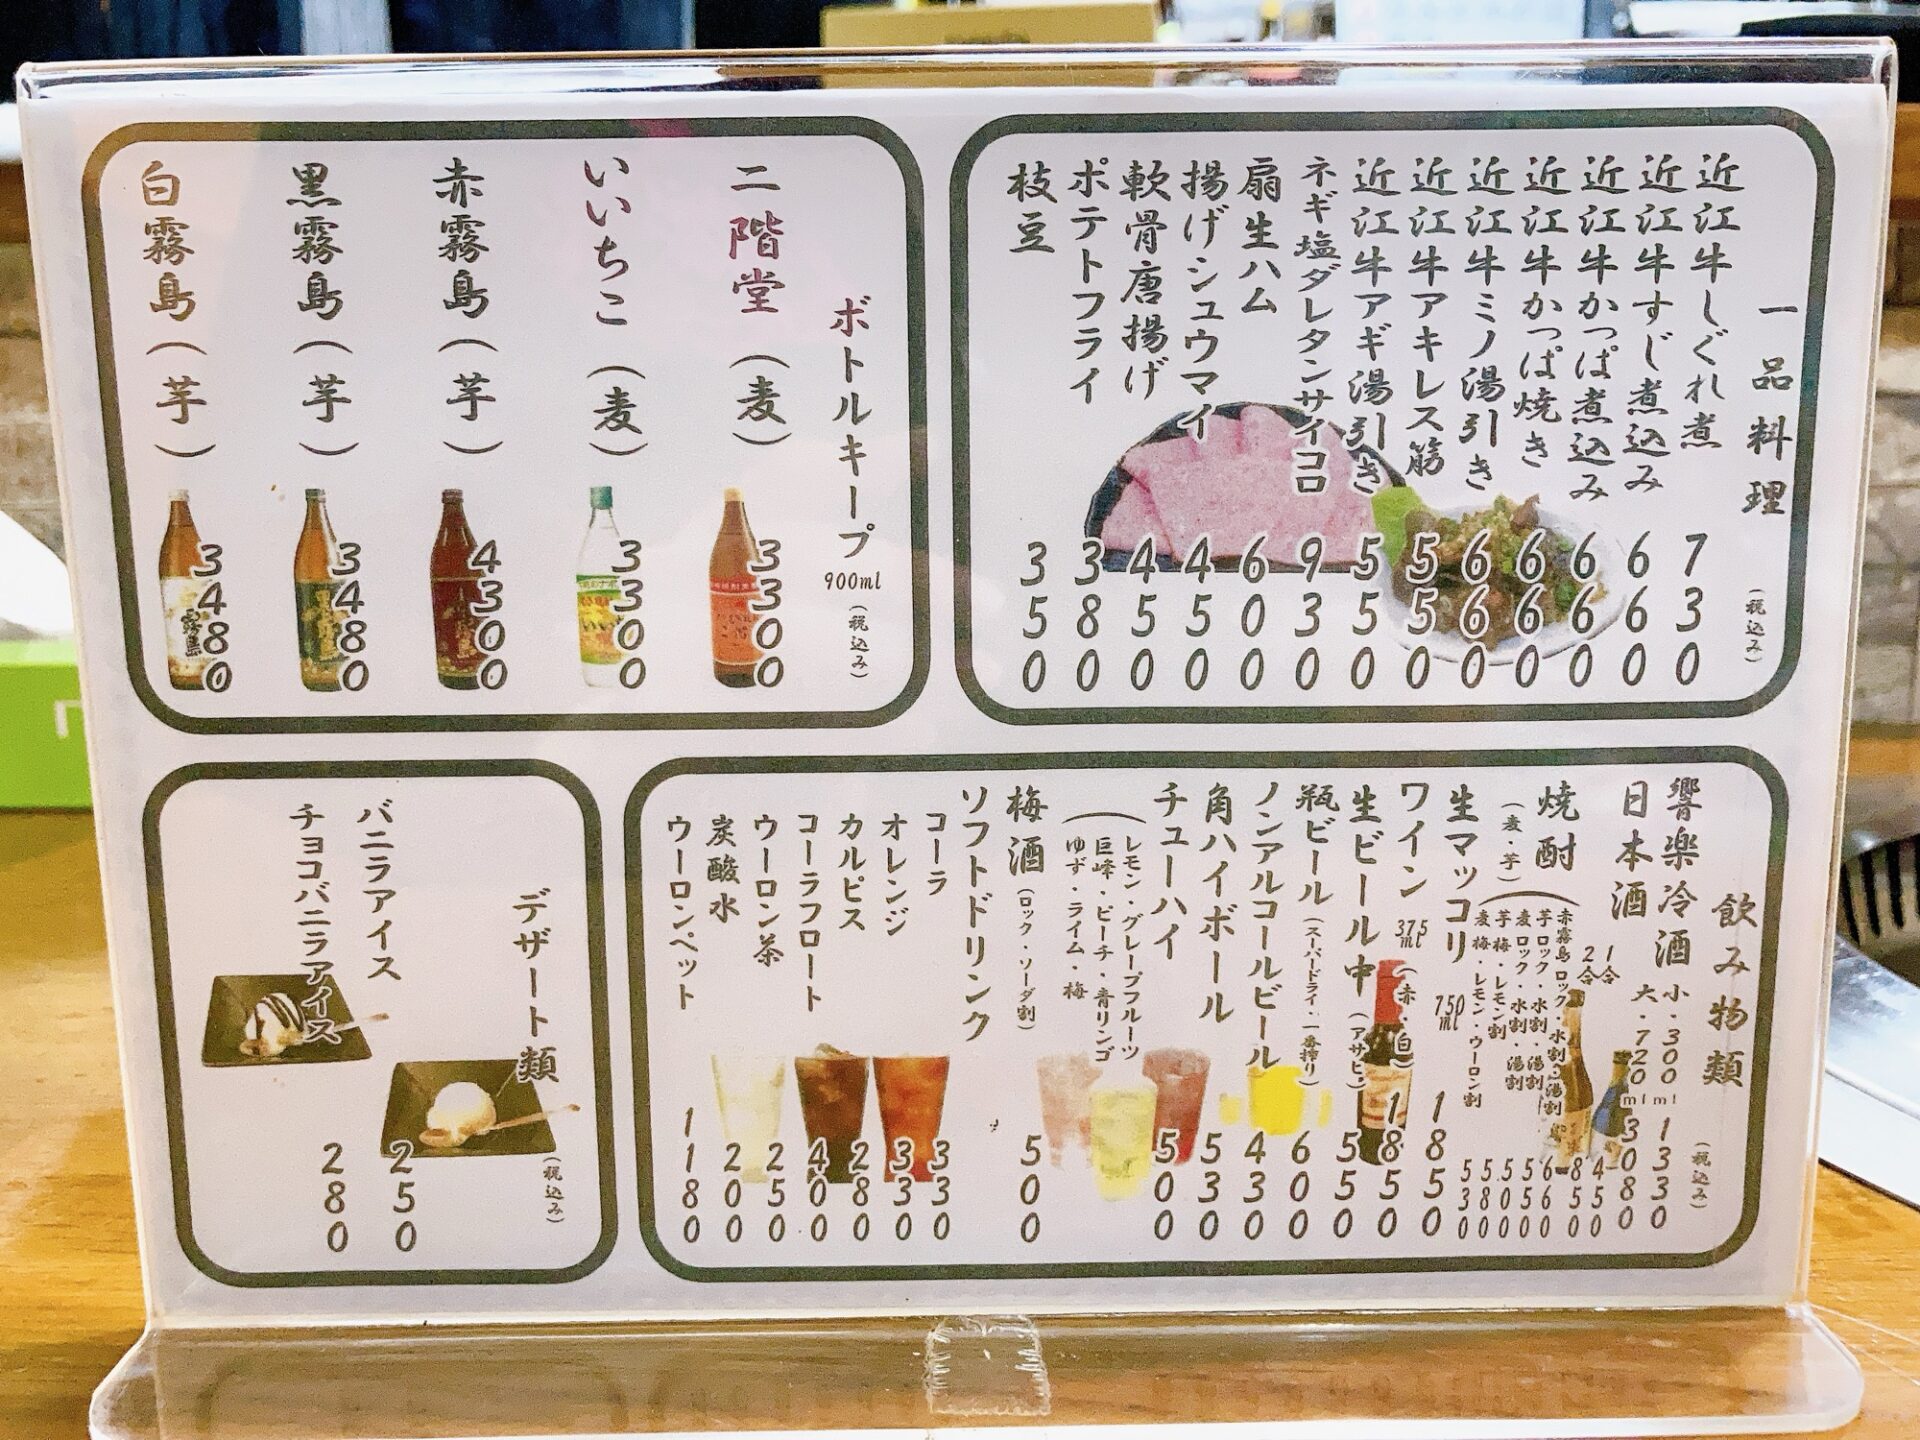 一品料理
(税込み)
近江牛しぐれ煮 730
近江牛すじ煮込み 660
近江牛かっぱ煮込み 660
近江牛かっぱ焼き 660
近江牛ミノ湯引き 660
近江牛アキレス筋 550
近江牛アギ湯引き 550
ネギ塩ダレタンサイコロ 930
扇生ハム 600
揚げシュウマイ 450
軟骨唐揚げ 450
ポテトフライ 380
枝豆 350
ボトルキープ 900ml (税込み)
二階堂(麦) 3300
いいちこ(麦) 3300
赤霧島(芋) 4300
黒霧島(芋) 3480
白霧島(芋) 3480
飲み物類
(税込み)
響楽冷酒 小・300ml 1330
大・720ml 3080
日本酒 1合 450
2合 850
焼酎(麦・芋)
赤霧島 ロック・水割・湯割 660
芋ロック・水割・湯割 550
麦ロック・水割・湯割 500
芋梅・レモン割 580
麦梅・レモン・ウーロン割 530
生マッコリ 750ml 1850
ワイン 375ml (赤・白) 1850
生ビール中(アサヒ) 550
瓶ビール(スーパードライ・一番搾り) 600
ノンアルコールビール 430
角ハイボール 530
チューハイ 500
(レモン・グレープフルーツ
巨峰・ピーチ・青リンゴ
ゆず・ライム・梅
梅酒(ロック・ソーダ割) 500
ソフトドリンク
コーラ 330
オレンジ 330
カルピス 280
コーラフロート 400
ウーロン茶 250
炭酸水 200
ウーロンペット 180
デザート類
(税込み)
バニラアイス 250
チョコバニラアイス 280